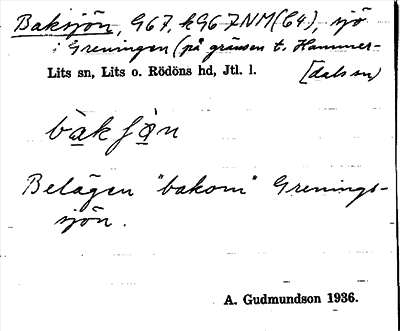 Baksjön, 967, k967NM(64), sjö
i Greningen (på gränsen t. Hammer-
Lits sn, Lits o. Rödöns hd, Jtl. l. [dals sn)
Belägen "bakom" Grenings-
sjön.
A. Gudmundson 1936.